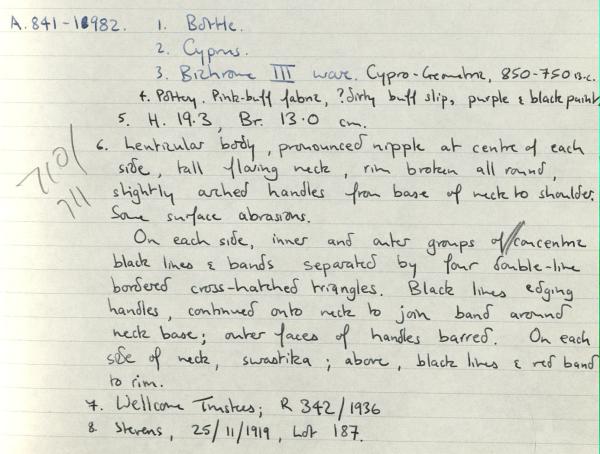 A.841-1982. 1. Bottle.
2. Cyprus.
3. Bichrome III ware. Cypro-Geometric, 850-750 B.C.
4. Pottery. Pink-buff fabric, ? dirty buff slip, purple & black paint.
5. H. 19.3, Br. 13.0 cm.
710/
711
6. Lenticular body, pronounced nipple at centre of each
side, tall flaring neck, rim broken all round,
slightly arched handles from base of neck to shoulder.
Some surface abrasions.
On each side, inner and outer groups of concentric
black lines & bands separated by four double-line
bordered cross-hatched triangles. Black lines edging
handles, continued onto neck to join band around
neck base; outer faces of handles barred. On each
side of neck, swastika; above, black lines & red band
to rim.
7. Wellcome Trustees; R 342/1936
8. Stevens, 25/11/1919, Lot 187.